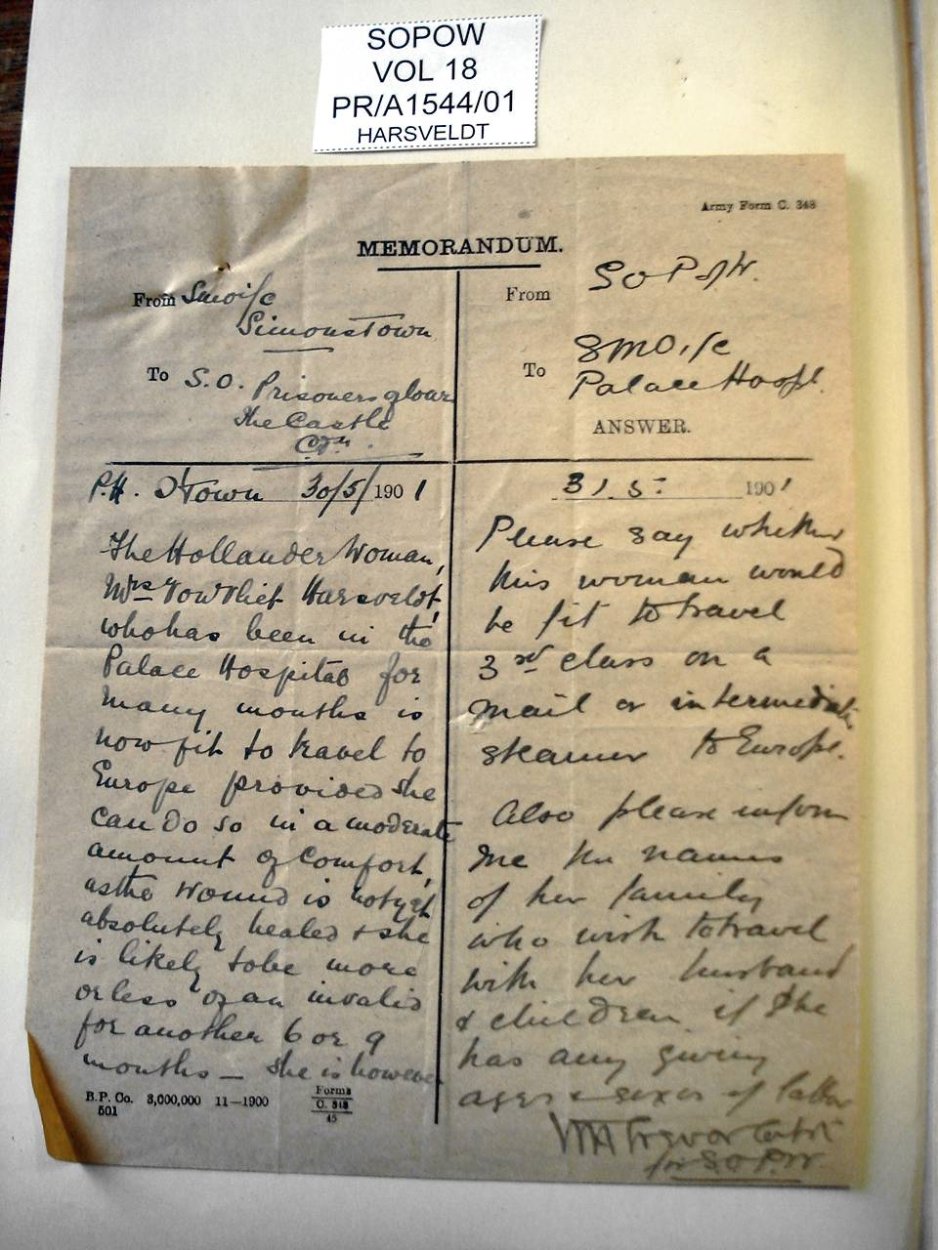 SOPOW
VOL 18
PR/A1544/01
HARSVELDT
Army Form C. 348
MEMORANDUM.
From Smoi/c
Simonstown
To S.O. Prisoners of War
The Castle
P.H. S'Town 30/5/1901
The Hollander Woman,
Mrs Harsveldt,
who has been in the
Palace Hospital for
many months is
now fit to travel to
Europe provided she
can do so in a moderate
amount of comfort,
as the wound is not yet
absolutely healed & she
is likely to be more
or less of an invalid
for another 6 or 9
months – She is however
B.P. Co. 3,000,000 11-1900
501
Forms
C. 348
45
From S O P of W.
To SMO i/c
Palace Hospl.
ANSWER.
31.5. 1901
Please say whether
this woman would
be fit to travel
3rd class on a
mail or intermediate
steamer to Europe.
Also please inform
me the names
of her family
who wish to travel
with her husband
& children if she
has any giving
ages & sexes of latter
Trevor
for S.O.P.W.